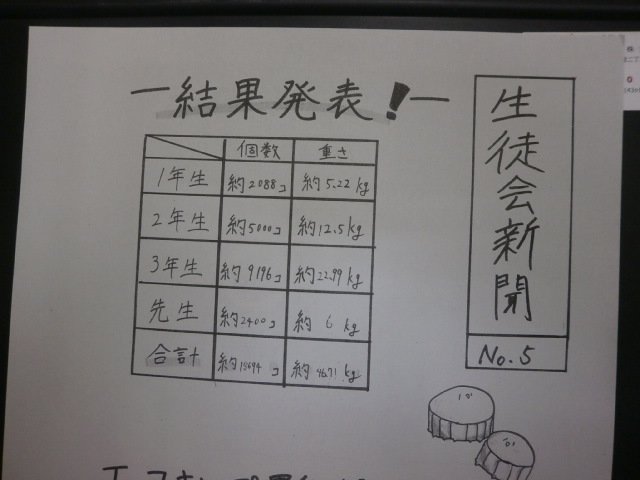 生徒会新聞
No.5
ー結果発表!ー
個数 重さ
1年生 約2088コ 約5.22kg
2年生 約5000コ 約12.5kg
3年生 約9196コ 約22.99kg
先生 約2400コ 約6kg
合計 約18694コ 約46.71kg